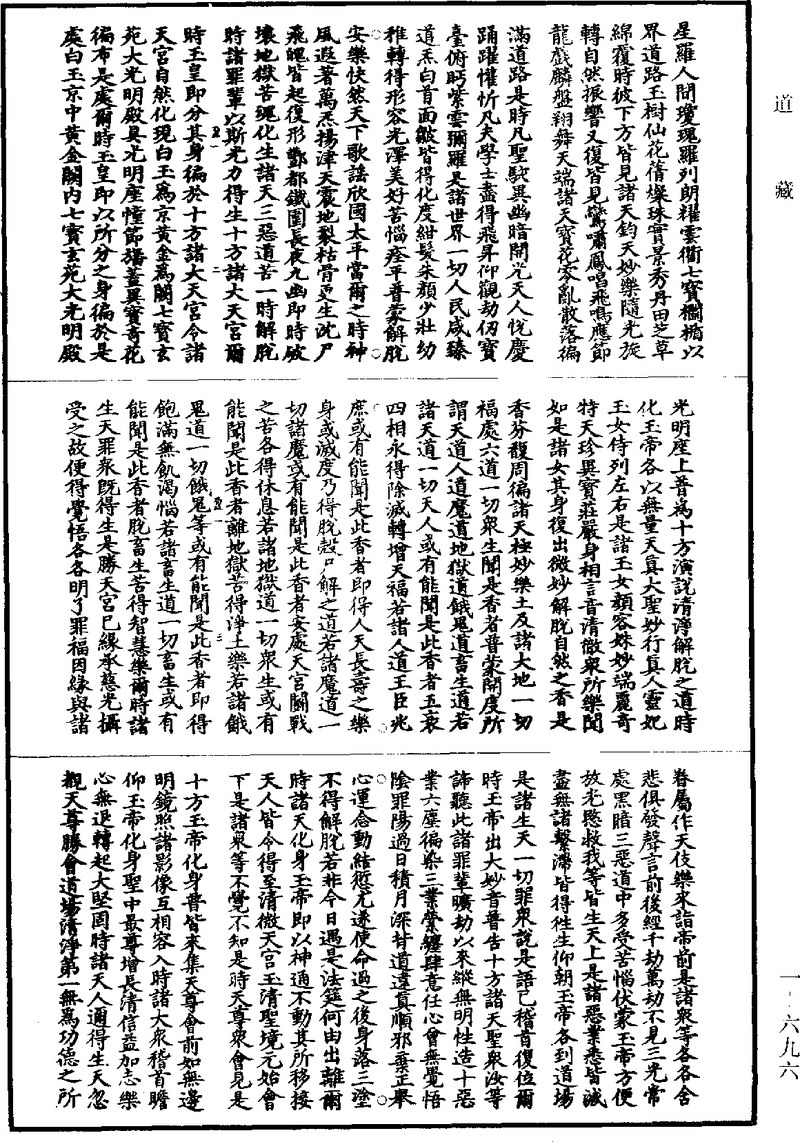 道藏
星羅人間瓊瑰羅列朗耀雲衢七寶欄楯以
界道路玉樹仙花蒨燦珠實景秀丹田芝草
綿覆時彼下方皆見諸天鈞天妙樂隨光旋
轉自然振響又復皆見鸞嘯鳳唱飛鳴應節
龍戲麟盤翔舞天端諸天寶花零亂散落徧
滿道路是時凡聖駭異幽暗開光天人悅慶
踊躍懽忻凡夫學士盡得飛昇仰觀劫仞寶
臺俯眄紫雲彌羅是諸世界一切人民咸臻
道炁白首面皺皆得化度紺髮朱顏少壯幼
稚轉得形容光澤美好苦惱痊平普蒙解脫
安樂快然天下歌謠欣國太平當爾之時神
風遐著萬炁揚津天震地裂枯骨更生沈尸
飛魄皆起復形酆都鐵圍長夜九幽即時破
壞地獄苦魂化生諸天三惡道苦一時解脫
時諸罪輩以斯光力得生十方諸大天宮爾
時玉皇即分其身徧於十方諸大天宮令諸
天宮自然化現白玉為京黃金為闕七寶玄
苑大光明殿具光明座幢節旛蓋異寶奇花
徧布是處爾時玉皇即以所分之身徧於是
處白玉京中黃金闕內七寶玄苑大光明殿
光明座上普為十方演說清淨解脫之道時
化玉帝各以無量天真大聖妙行真人靈妃
玉女侍列左右是諸玉女顏容姝妙端麗奇
特天珍異寶莊嚴身相言音清徹衆所樂聞
如是諸女其身復出微妙解脫自然之香是
香芬馥周徧諸天極妙樂土及諸大地一切
福處六道一切衆生聞是香者普蒙開度所
謂天道人道魔道地獄道餓鬼道畜生道若
諸天道一切天人或有能聞是此香者五衰
四相永得除滅轉增天福若諸人道王臣兆
庶或有能聞是此香者即得人天長壽之樂
身或滅度乃得脫殼尸解之道若諸魔道一
切諸魔或有能聞是此香者安處天宮鬭戰
之苦各得休息若諸地獄道一切衆生或有
能聞是此香者離地獄苦得淨土樂若諸餓
鬼道一切餓鬼等或有能聞是此香者即得
飽滿無飢渴惱若諸畜生道一切畜生或有
能聞是此香者脫畜生苦得智慧樂爾時諸
生天罪衆既得生是勝天宮已緣承慈光攝
受之故便得覺悟各各明了罪福因緣與諸
眷屬作天伎樂來詣帝前是諸衆等各各含
悲俱發聲言前後經千劫萬劫不見三光常
處黑暗三惡道中多受苦惱伏蒙玉帝方便
放光愍救我等皆生天上是諸惡業悉皆滅
盡無諸繫滯皆得徃生仰朝玉帝各到道場
是諸生天一切罪衆說是語已稽首復位爾
時玉帝出大妙音普告十方諸天聖衆汝等
諦聽此諸罪輩曠劫以來縱無明性造十惡
業六塵徧染三業縈纏肆意任心曾無覺悟
陰罪陽過日積月深背道違真順邪棄正舉
心運念動結愆尤遂使命過之後身落三塗
不得解脫若非今日遇是法筵何由出離爾
時諸天化身玉帝即以神通不動其所移接
天人皆令得至清微天宮玉清聖境元始會
下是諸衆等不覺不知是時天尊衆會見是
十方玉帝化身普皆來集天尊會前如無邊
明鏡照諸影像互相容入時諸大衆稽首瞻
仰玉帝化身聖中最尊增長清信益加志樂
心無退轉起大堅固時諸天人邇得生天忽
覩天尊勝會道場清淨第一無為功德之所
一·六九六